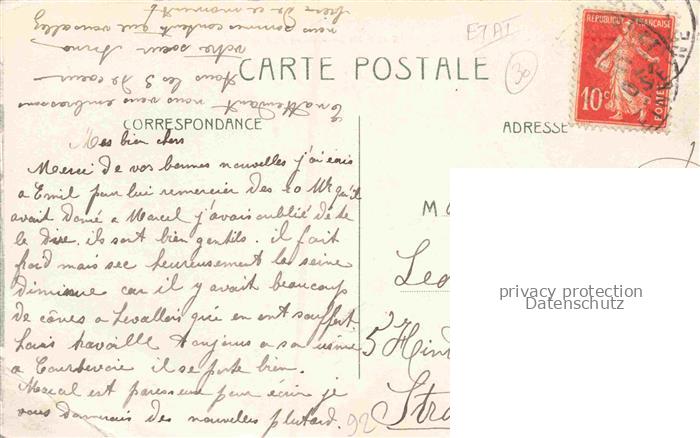 CARTE POSTALE
CORRESPONDANCE
ADRESSE
REPUBLIQUE FRANÇAISE
10c
POSTES
ETAT
30
Mes bien chers
Merci de vos bonnes nouvelles j'ai écris
a Emil pour lui remercier des 20 Mk qu'il
avait donné a Marcel j'avais oublié de te
le dire. ils sont bien gentils. il fait
froid mais sec heureusement la seine
diminue car il y avait beaucoup
de caves a Levallois qui en ont souffert.
Louis travaille toujours a son usine
a Courbevoie il se porte bien.
Marcal est paresseux pour écrire je
vous donnerais des nouvelles plutard.
En attendant nous vous embrassons
tous les 3 de coeur
votre soeur Anna
nous sommes content que vous allez
bien de ce moment
M
Leo
5 Hind
Stra
92
privacy protection
Datenschutz